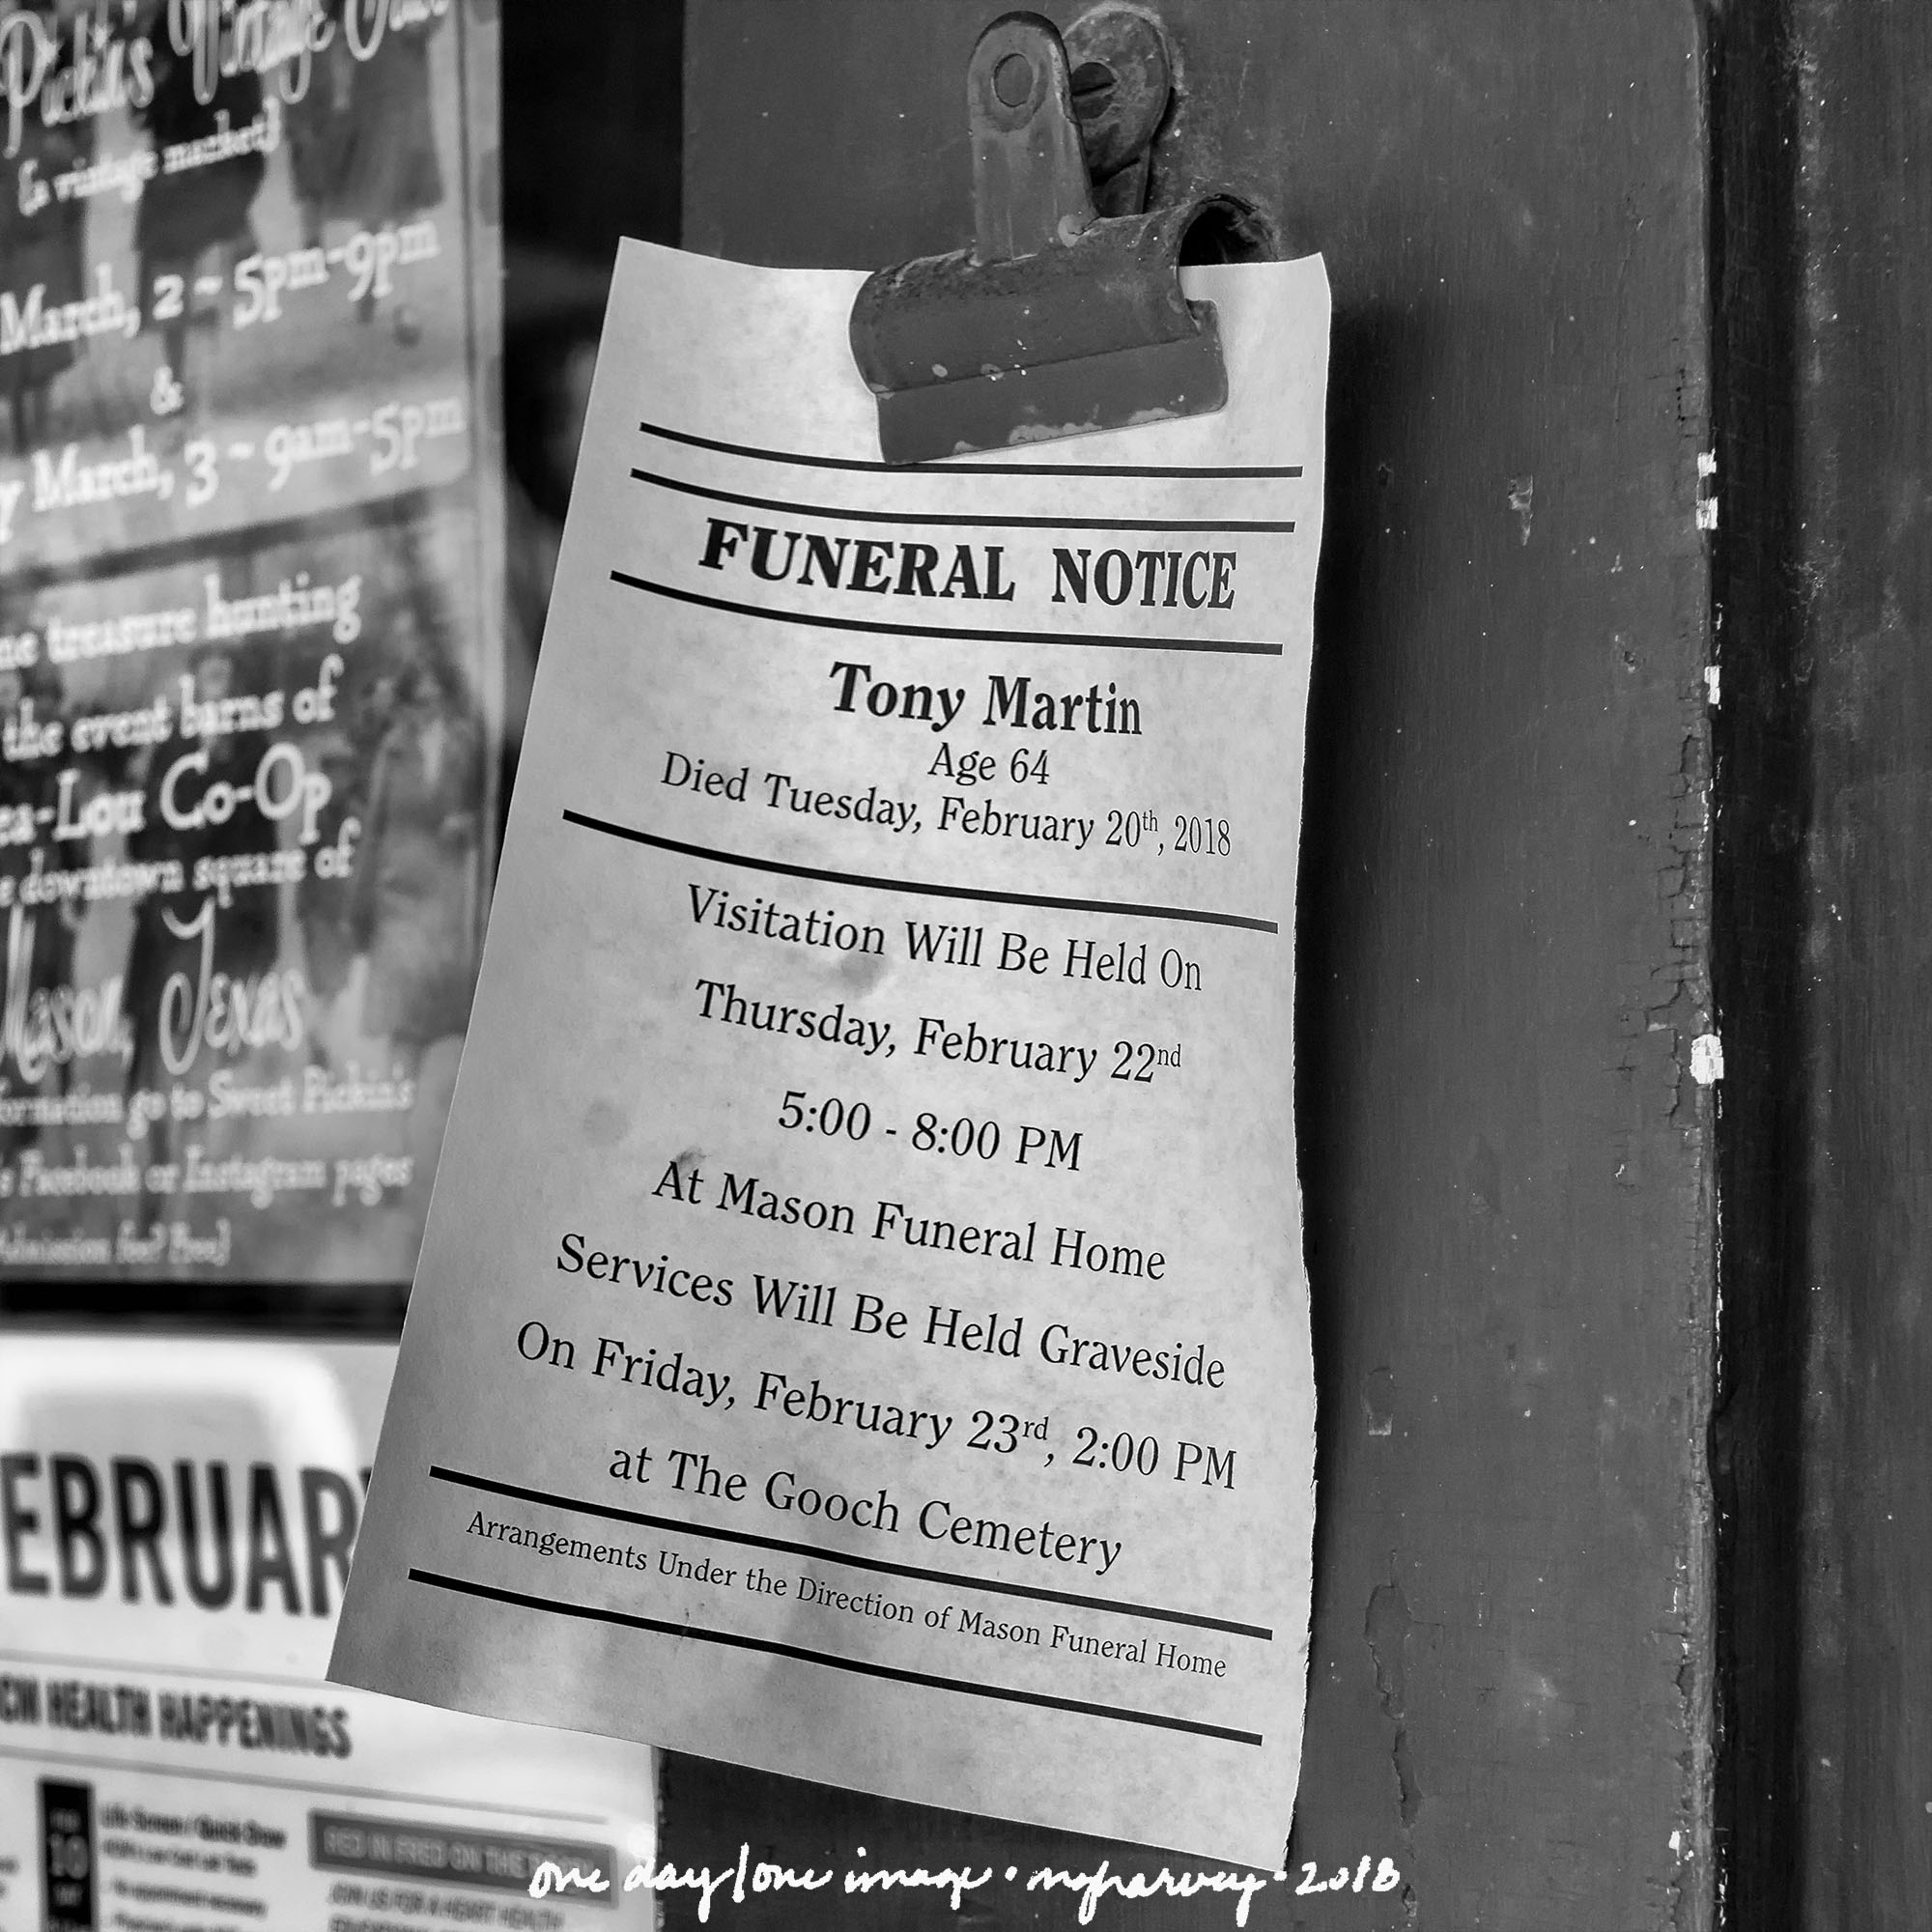 Pickin's Vintage
{a vintage market}
March, 2 ~ 5pm-9pm
&
March, 3 ~ 9am-5pm
treasure hunting
the event barns of
Lou Co-Op
downtown square of
Mason, Texas
go to Sweet Pickin's
Facebook or Instagram pages
Admission fee? Free}
EBRUAR
HEALTH HAPPENINGS
10
RED IN FRED ON THE
JOIN US FOR A HEART HEALTH
FUNERAL NOTICE
Tony Martin
Age 64
Died Tuesday, February 20th, 2018
Visitation Will Be Held On
Thursday, February 22nd
5:00 - 8:00 PM
At Mason Funeral Home
Services Will Be Held Graveside
On Friday, February 23rd, 2:00 PM
at The Gooch Cemetery
Arrangements Under the Direction of Mason Funeral Home
one day/one image • mgharvey • 2018